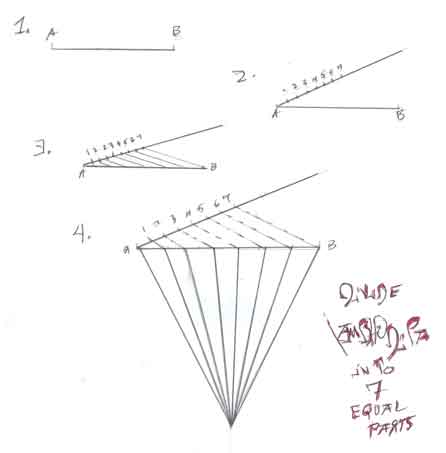 1.
A B
2.
1 2 3 4 5 6 7
A B
3.
1 2 3 4 5 6 7
A B
4.
1 2 3 4 5 6 7
A B
DIVIDE
INTO
7
EQUAL
PARTS